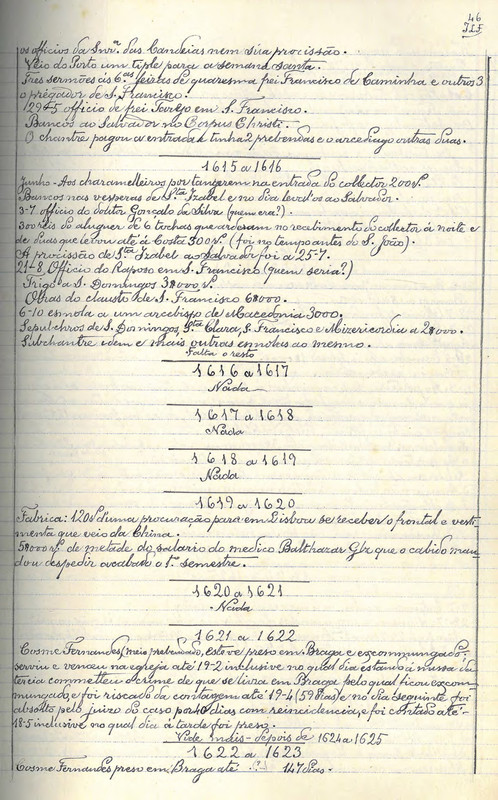 46
os officios da Invrᵃ. das Candeias nem sua procissão.
Veio do Porto um tiple para a semana santa.
Tres sermões ás 6.ᵃˢ feiras de quaresma frei Francisco de Caminha e outros 3
o prégador de S. Francisco.
officio de frei Forejo em S. Francisco.
Bancos ao Salvador no Corpus Christi.
O chantre pagou a entrada e tinha 2 prebendas e o arcediago outras duas.
1615 a 1616
Junho - Aos charamelleiros por tangerem na entrada do collector 200 rs.
Bancos nas vesperas de Sᵗᵃ Izabel e no dia leval-os ao Salvador.
3-7 officio do doutor Gonçalo da Silva (quem era?).
300 reis de aluguer de 6 tochas que arderam no recebimento do collector á noite e
de duas que levou até á Costa 300 rs. (foi no tempo antes do S. João).
A procissão de Sᵗᵃ Izabel ao Salvador foi a 25-7.
21-8 Officio do Raposo em S. Francisco (quem seria?)
Trigo a S. Domingos 38000 rs.
Obras do claustro de S. Francisco 68000.
6-10 esmola a um arcebispo de Macedonia 3000.
Sepulchros de S. Domingos, Sᵗᵃ Clara, S. Francisco e Misericordia a 28000.
Subchantre idem e mais outras esmolas ao mesmo.
Falta o resto
1616 a 1617
Nada
1617 a 1618
Nada
1618 a 1619
Nada
1619 a 1620
Fabrica: 120 rs d'uma procuração para em Lisboa se receber o frontal e vesti-
menta que veio da China.
58000 rs. de metade do salario do medico Balthazar Glz que o cabido man-
dou despedir acabado o 1.º semestre.
1620 a 1621
Nada
1621 a 1622
Cosme Fernandes, meio prebendado, esteve preso em Braga e excommungado:
serviu e venceu na egreja até 19-2 inclusive no qual dia estando á missa da
tercia commetteu o crime de que se livra em Braga pelo qual ficou excom-
mungado, e foi riscado da contagem até 19-4 (59 dias) e no dia seguinte foi
absolto pelo juizo do caso por 40 dias com reincidencia, e foi contado até
18-5 inclusive no qual dia á tarde foi preso.
Vide mais - depois de 1624 a 1625
1622 a 1623
Cosme Fernandes preso em Braga até 147 dias.